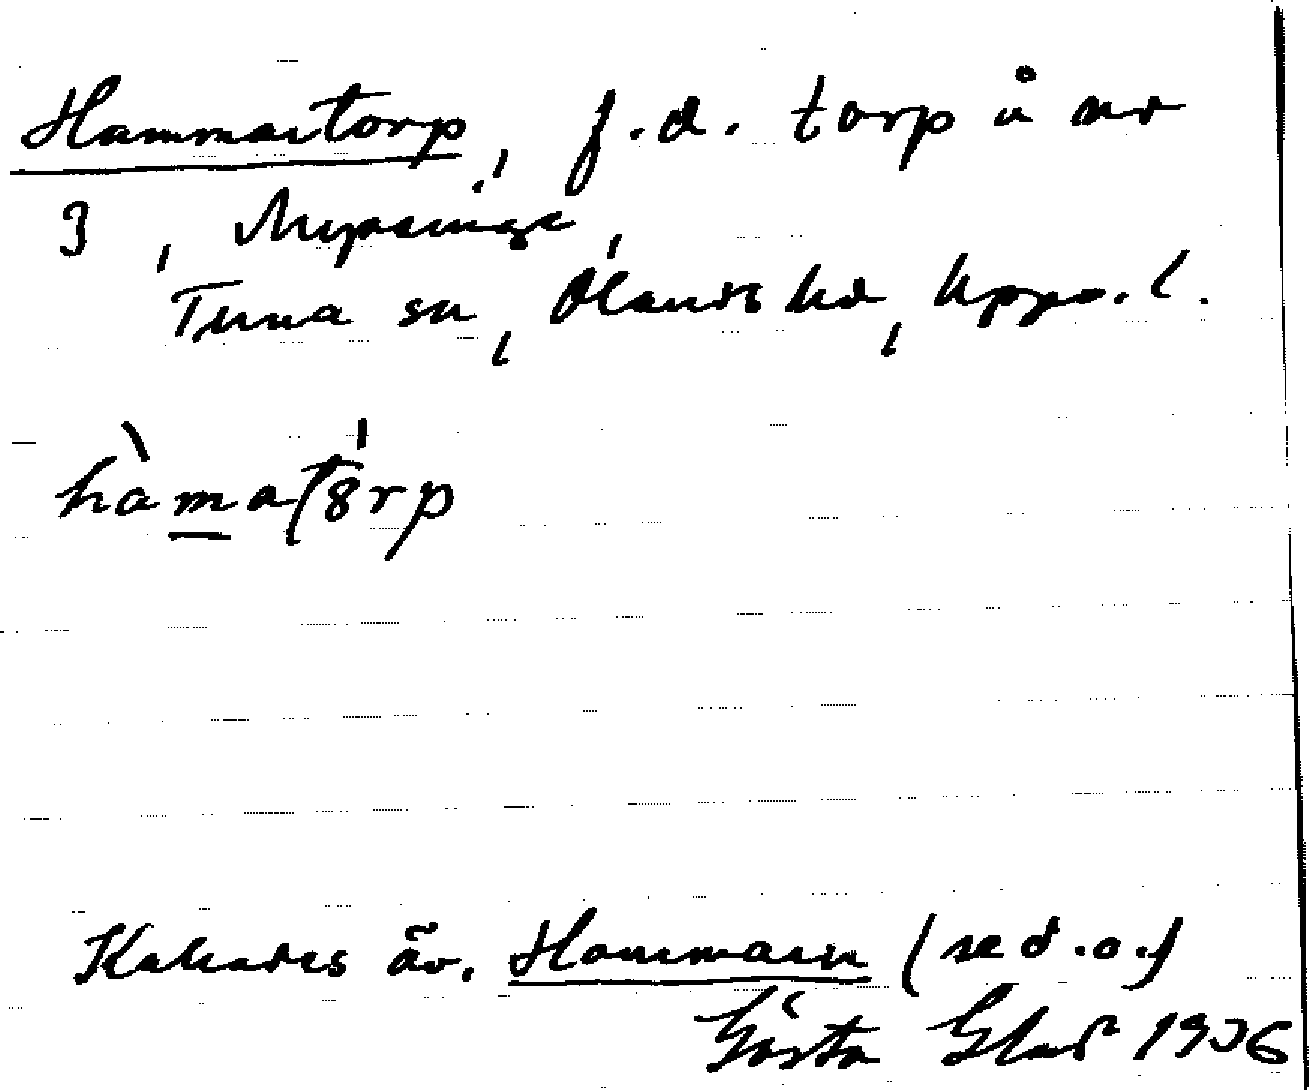 Hammartorp, f.d. torp å nr
3, Mysinge,
Tuna sn, Olands hd, Upps. l.
hàmatŏ́rp
Kallades äv. Hammarn (se d.o.)
Gösta 1936